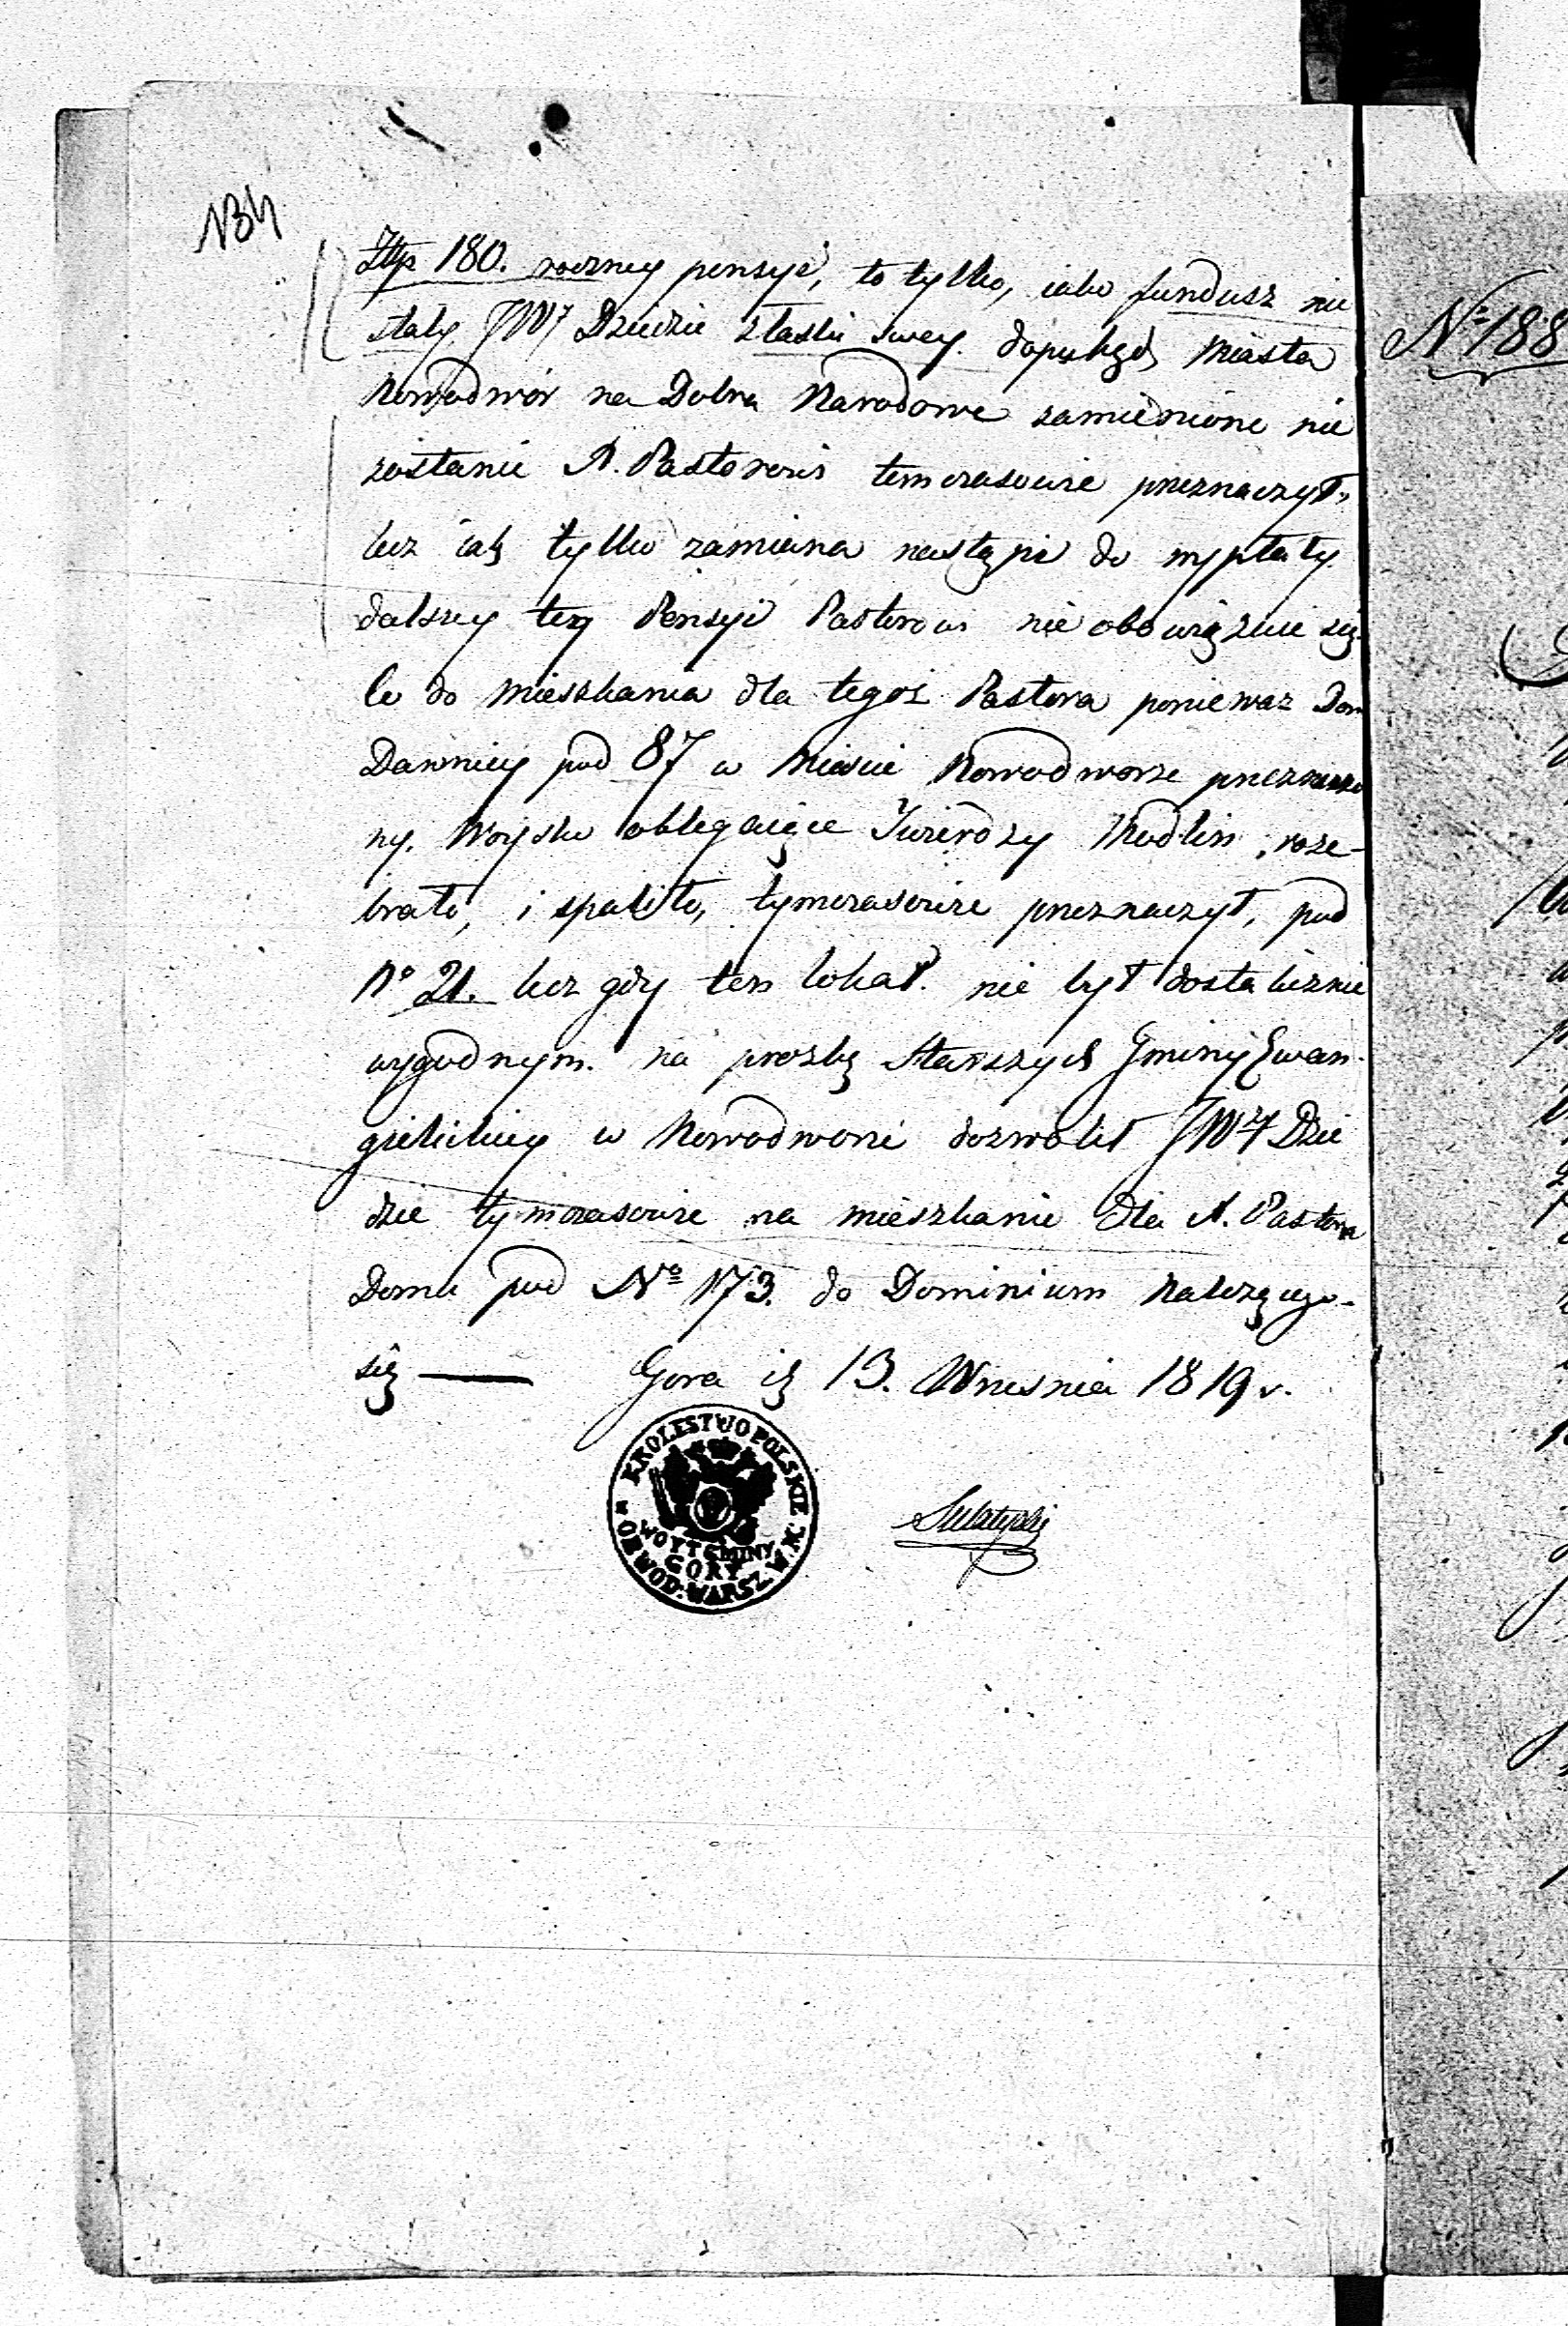 134
Złp 180. roczney pensyi, to tylko, iako fundusz nie
stały JWy Dziedzic z łaski swey. dopukąd Miasto
Nowodwór na Dobra Narodowe zamienione nie
zostanie N. Pastorowi temczasowie przeznaczył,
lecz iak tylko zamiana nastąpi do wypłaty
dalszey tey Pensyi Pastorowi nie obowiązuie się.
Co do mieszkania dla tegoż Pastora ponieważ Dom
Dawniey pod 87 w Miescie Nowodworze przeznaczo
ny. Woysko oblegaiące Twierdzy Modlin, roze-
brało, i spaliło, tymczasowie przeznaczył, pod
No 21. lecz gdy ten lokal. nie był dostatecznie
wygodnym. na prozbę Starszych Gminy Ewan-
gielickiey w Nowodworze dozwolił JWy Dzie
dzic tymczasowie na mieszkanie dla N. Pastora
Domu pod No 173. do Dominium Należącego-
się — Gora d. 13. Wrzesnia 1819 r.
KROLESTWO POLSKIE
WOYT GMINY
GORY
OBWOD: WARSZ. W. M.
No 188